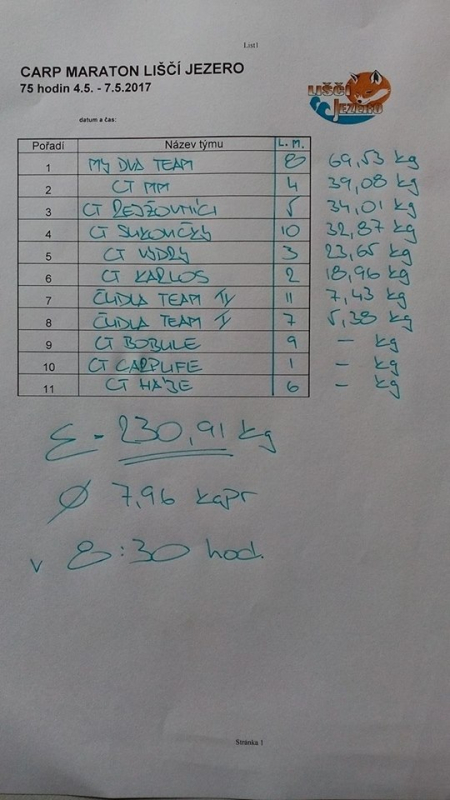 List1
CARP MARATON LIŠČÍ JEZERO
75 hodin 4.5. - 7.5.2017
LIŠČÍ
JEZERO
datum a čas:
Pořadí Název týmu L.M.
1 MY DVA TEAM 8 69,53 kg
2 CT MM 4 39,08 kg
3 CT 5 34,01 kg
4 CT 10 32,87 kg
5 CT VYDRY 3 23,65 kg
6 CT KARLOS 2 18,96 kg
7 ČUDLA TEAM II 11 7,43 kg
8 ČUDLA TEAM I 7 5,38 kg
9 CT BOBULE 9 - kg
10 CT CARPLIFE 1 - kg
11 CT HÁJE 6 - kg
Σ = 230,91 kg
Ø 7,96 kapr
v 8:30 hod.
Stránka 1